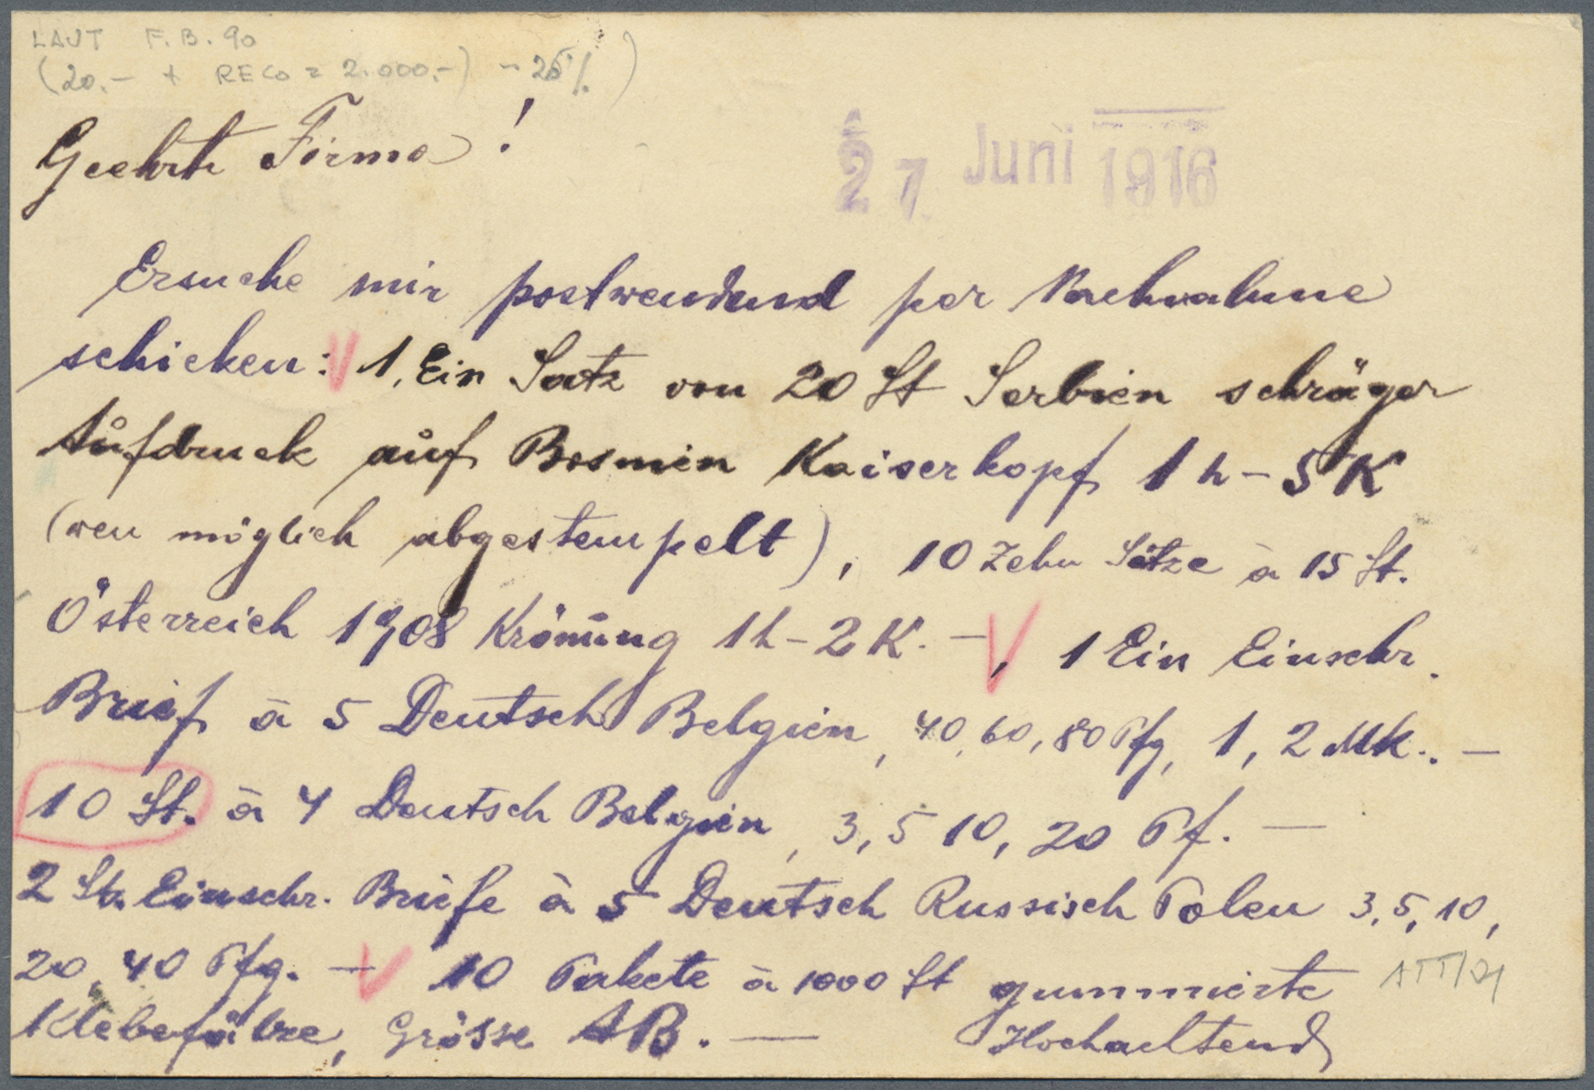 LAUT F.B. 90
(20.- + RECO = 2.000,-) - 25%)
Geehrte Firma!
27 Juni 1916
Ersuche mir postwendend per Nachnahme
schicken: 1, Ein Satz von 20 St Serbien schräger
Aufdruck auf Bosnien Kaiserkopf 1 h – 5 K
(wen möglich abgestempelt), 10 Zehn Sätze à 15 St.
Österreich 1908 Krönung 1 h – 2 K. –, 1 Ein Einschr.
Brief à 5 Deutsch Belgien, 40, 60, 80 Pfg, 1, 2 Mk.. —
10 St. à 4 Deutsch Belgien, 3, 5 10, 20 Pf. —
2 St. Einschr. Briefe à 5 Deutsch Russisch Polen 3, 5, 10,
20, 40 Pfg. — 10 Pakete à 1000 St gummierte
Klebefälze, Grösse AB. — Hochachtend